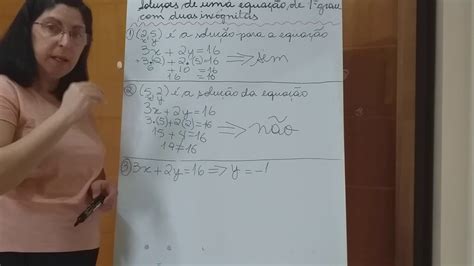 Soluções de uma equação de 1º grau
com duas incógnitas
① (2,5) é a solução para a equação
3x + 2y = 16
3·(2) + 2·(5) = 16 ⟹ sim
6 + 10 = 16
16 = 16
② (5,2) é a solução da equação
3x + 2y = 16
3·(5) + 2(2) = 16
15 + 4 = 16 ⟹ não
19 ≠ 16
③ 3x + 2y = 16 ⟹ y = -1